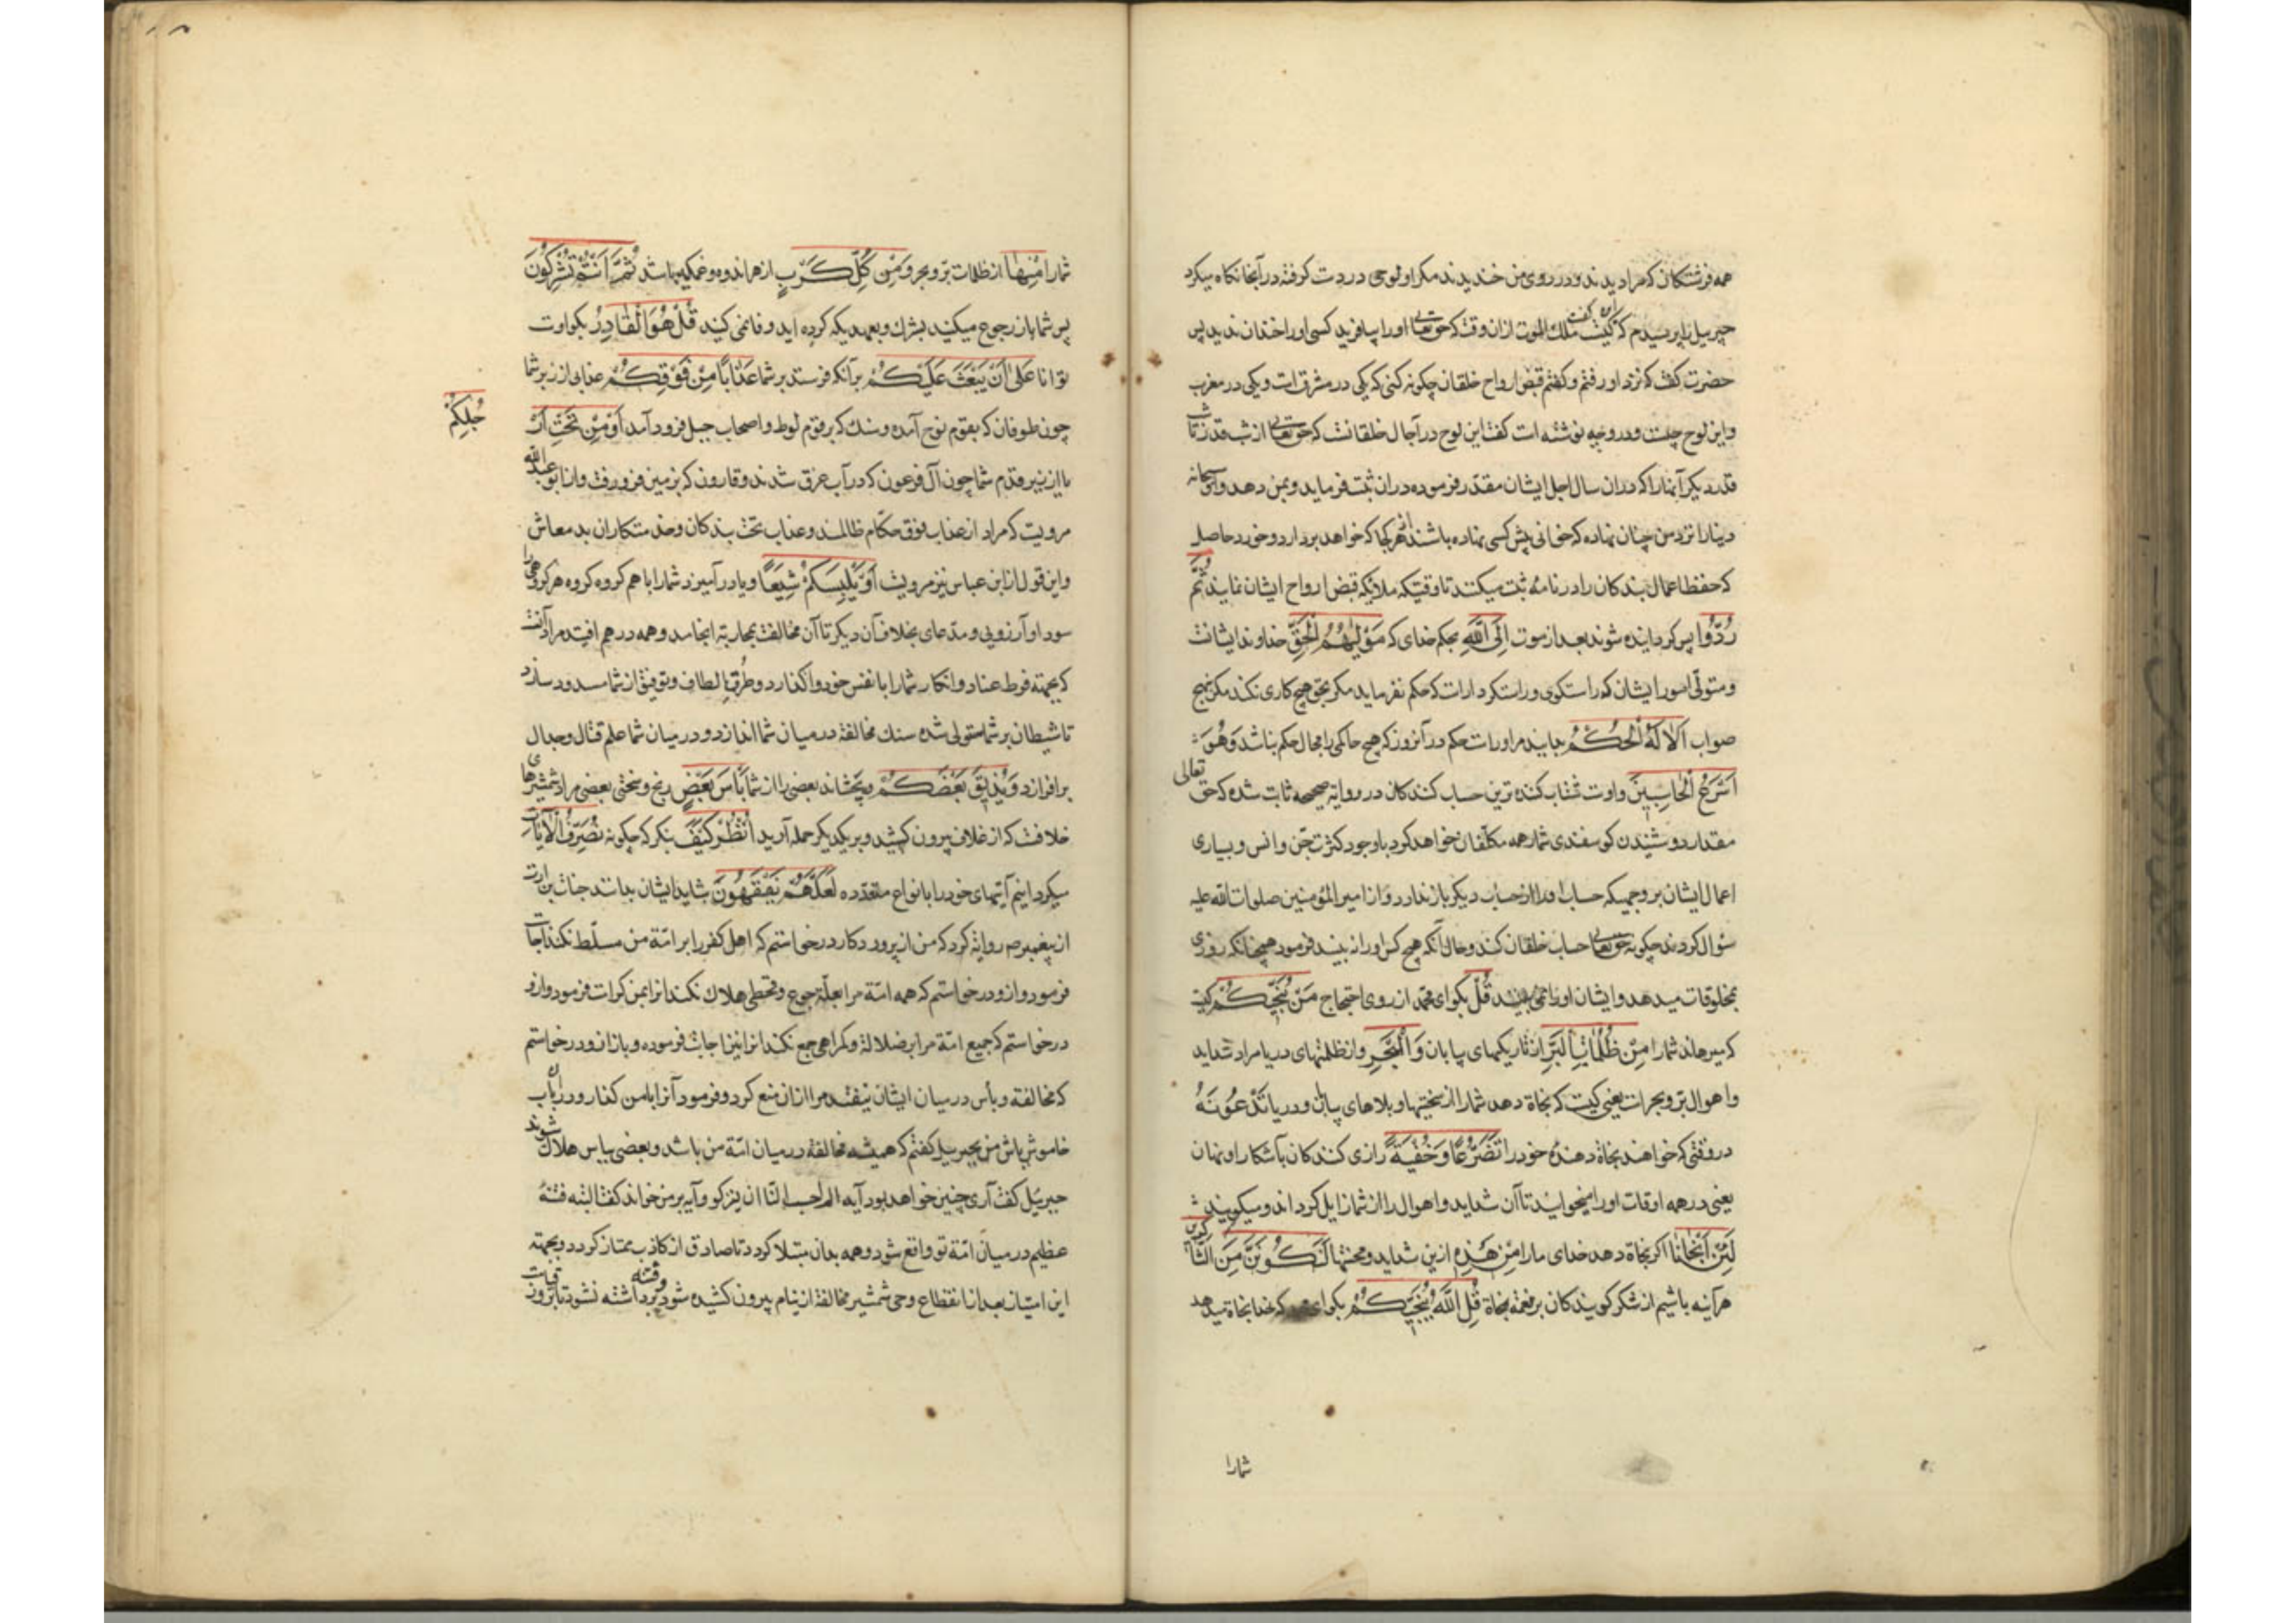 همه فرشتكان كه مرا ديدند و در روى من خنديدند مكر او لوحى در دست كرفته در آنجا نكاه ميكرد
جبرييل را پرسيدم كه اين كيست كفت ملك الموت ازان وقت كه حق تعالى او را بيافريد كسى او را خندان نديد پس
حضرت كفت كه نزد او رفتم و كفتم قبض ارواح خلقان چكونه كنى كه يكى در مشرق است و يكى در مغرب
و اين لوح چيست و در و چه نوشته است كفت اين لوح در آجال خلقانست كه حق تعالى از شب قدر تا شب
قدر ديكر آنها را كه دران سال اجل ايشان مقدر فرموده دران ثبت فرمايد و بمن دهد و او سبحانه
دنيا را نزد من چنان نهاده كه خوانى پيش كسى نهاده باشند از هر كجا كه خواهد بردارد و خورد حاصل
كه حفظا اعمال بندكان را در نامه ثبت ميكنند تا وقتيكه ملائكه قبض ارواح ايشان نمايند ثُمَّ
رُدُّوا پس كردانيده شوند بعد از موت اِلَى اللّهِ بحكم خداى كه مَوْلٰيهُمُ الْحَقِّ خداوند ايشانست
و متولّى امور ايشان كه راستكوى و راست كردارست كه حكم نفرمايد مكر بحق و هيچ كارى نكند مكر بنهج
صواب اَلَا لَهُ الْحُكْمُ بدانيد مر او راست حكم در آنروز كه هيچ حاكمى را مجال حكم نباشد وَهُوَ
اَسْرَعُ الْحَاسِبِينَ و اوست شتاب كننده ترين حساب كنندكان در روايه صحيحه ثابت شده كه حق تعالى
مقدار دوشيدن كوسفندى شمار همه مكلّفان خواهد كرد باوجود كثرت جنّ و انس و بسيارى
اعمال ايشان بر وجهيكه حساب او را از حساب ديكر باز ندارد و از امير المؤمنين صلوات الله عليه
سؤال كردند چكونه حق تعالى حساب خلقان كند و حال آنكه هيچ كس او را نه بيند فرمود همچنانكه روزى
بمخلوقات ميدهد و ايشان او را نمى بينند قُلْ بكو اى محمد از روى احتجاج مَنْ يُنَجِّيكُمْ كيست
كه ميرهاند شما را مِنْ ظُلُمَاتِ الْبَرِّ از تاريكيهاى بيابان وَالْبَحْرِ و از ظلمتهاى دريا مراد شدايد
و اهوال بر و بحر است يعنى كيست كه نجاة دهد شما را از سختيها و بلاهاى بيابان و دريا تَدْعُونَهُ
در وقتى كه خواهند نجاة دهندهٔ خود را تَضَرُّعًا وَخُفْيَةً زارى كنندكان بآشكارا و نهان
يعنى در همه اوقات او را ميخوانيد تا آن شدايد و اهوال را از شما زايل كرداند و ميكوييد
لَئِنْ اَنْجَانَا اكر نجاة دهد خداى ما را مِنْ هٰذِهِ ازين شدايد و محنتها لَنَكُونَنَّ مِنَ الشَّاكِرِينَ
هرآينه باشيم از شكر كويندكان بر نعمة نجاة قُلِ اللّهُ يُنَجِّيكُمْ بكو اى محمد كه خدا نجاة ميدهد
شما را
شما را مِنْهَا از ظلمات بر و بحر وَمِنْ كُلِّ كَرْبٍ از هر اندوه و غمكيه باشد ثُمَّ اَنْتُمْ تُشْرِكُونَ
پس شما باز رجوع ميكنيد بشرك و بعهديكه كرده ايد وفا نمى كنيد قُلْ هُوَ الْقَادِرُ بكو اوست
توانا عَلٰى اَنْ يَبْعَثَ عَلَيْكُمْ برآنكه فرستد بر شما عَذَابًا مِنْ فَوْقِكُمْ عذابى از زبر شما
چون طوفان كه بقوم نوح آمده و سنك كه بر قوم لوط و اصحاب جبل فرود آمد اَوْ مِنْ تَحْتِ اَرْ
جُلِكُمْ
يا از زير قدم شما چون آل فرعون كه در آب غرق شدند و قارون كه بزمين فرو رفت و از ابو عبد الله
مرويست كه مراد از عذاب فوق حكّام ظالمند و عذاب تحت بندكان و خدمتكاران بد معاش
و اين قول از ابن عباس نيز مرويست اَوْ يَلْبِسَكُمْ شِيَعًا و يا در آميزد شما را با هم كروه كروه هر كروهى را
سودا و آرزويى و مدعاى بخلاف آن ديكر تا آن مخالفت بمحاربه انجامد و همه در هم افتيد مراد آنست
كه بجهته فرط عناد و انكار شما را با نفس خود واكذارد و طرق الطاف و توفيق از شما مسدود سازد
تا شيطان بر شما مستولى شده سنك مخالفة در ميان شما اندازد و در ميان شما علم قتال و جدال
برافرازد وَيُذِيقَ بَعْضَكُمْ و بچشاند بعضى را از شما بَأْسَ بَعْضٍ رنج و سختى بعضى مراد شمشيرهاى
خلافست كه از غلاف بيرون كشيد و بر يكديكر حمله آريد اُنْظُرْ كَيْفَ بنكر كه چكونه نُصَرِّفُ الْاٰيَاتِ
ميكردانيم آيتهاى خود را بانواع متعدده لَعَلَّهُمْ يَفْقَهُونَ شايد ايشان بدانند جناب بن ارت
از پيغمبر ص روايه كرد كه من از پروردكار درخواستم كه اهل كفر را بر امّة من مسلّط نكند اجابت
فرمود و ازو درخواستم كه همه امّة مرا بعلّة جوع و قحطى هلاك نكند انرا بمن كرامت فرمود و ازو
درخواستم كه جميع امّة مرا بر ضلالة و كمراهى جمع نكند انرا نيز اجابت فرموده و باز ازو درخواستم
كه مخالفة و بأس در ميان ايشان نيفتد مرا ازان منع كرد و فرمود آنرا با من كذار و دران باب
خاموش باش من بجبرييل كفتم كه هميشه مخالفة در ميان امّة من باشد و بعضى بباس هلاك شوند
جبرييل كفت آرى چنين خواهد بود آيه الم احسب الناس ان يتركوا آيه بر من خواند كفت البته فتنهٔ
عظيم در ميان امّة تو واقع شود و همه بدان مبتلا كردد تا صادق از كاذب ممتاز كردد و بجهته
اين امتيان بعد از انقطاع وحى شمشير مخالفة از نيام بيرون كشيده شود و فتنه برداشته نشود تا بروز قيامت